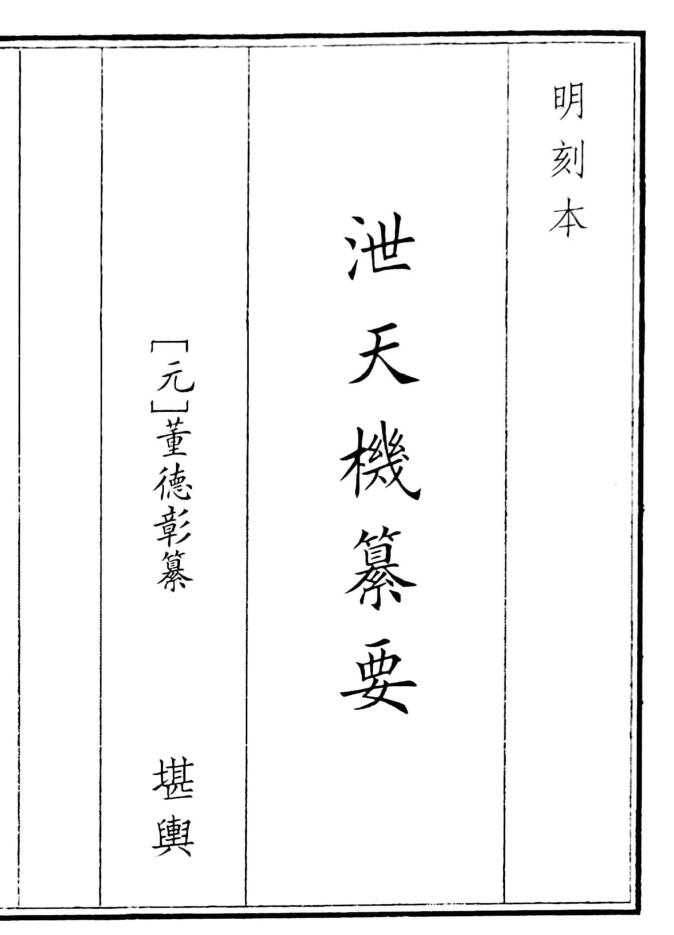 明刻本
泄天機纂要
[元]董德彰纂
堪輿